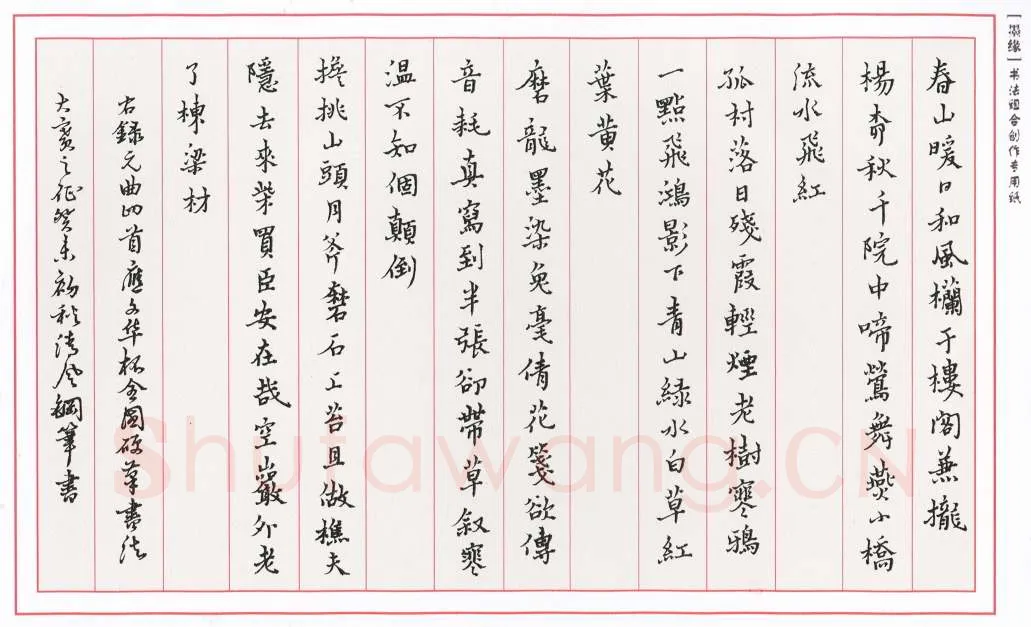 [墨缘]书法组合创作专用纸
春山暖日和風欄干樓閣兼攏
楊柳秋千院中啼鶯舞燕小橋
流水飛紅
孤村落日殘霞輕煙老樹寒鴉
一點飛鴻影下青山綠水白草紅
葉黄花
磨龍墨染兔毫倩花箋欲傳
音耗真寫到半張卻帶草叙寒
温不知個顛倒
擔挑山頭月斧磨石上苔且做樵夫
隱去來柴買臣安在哉空巖外老
了棟梁材
右錄元曲四首應文华杯全國硬筆書法
大賽之征癸未初秋清風鋼筆書
Shufawang.CN